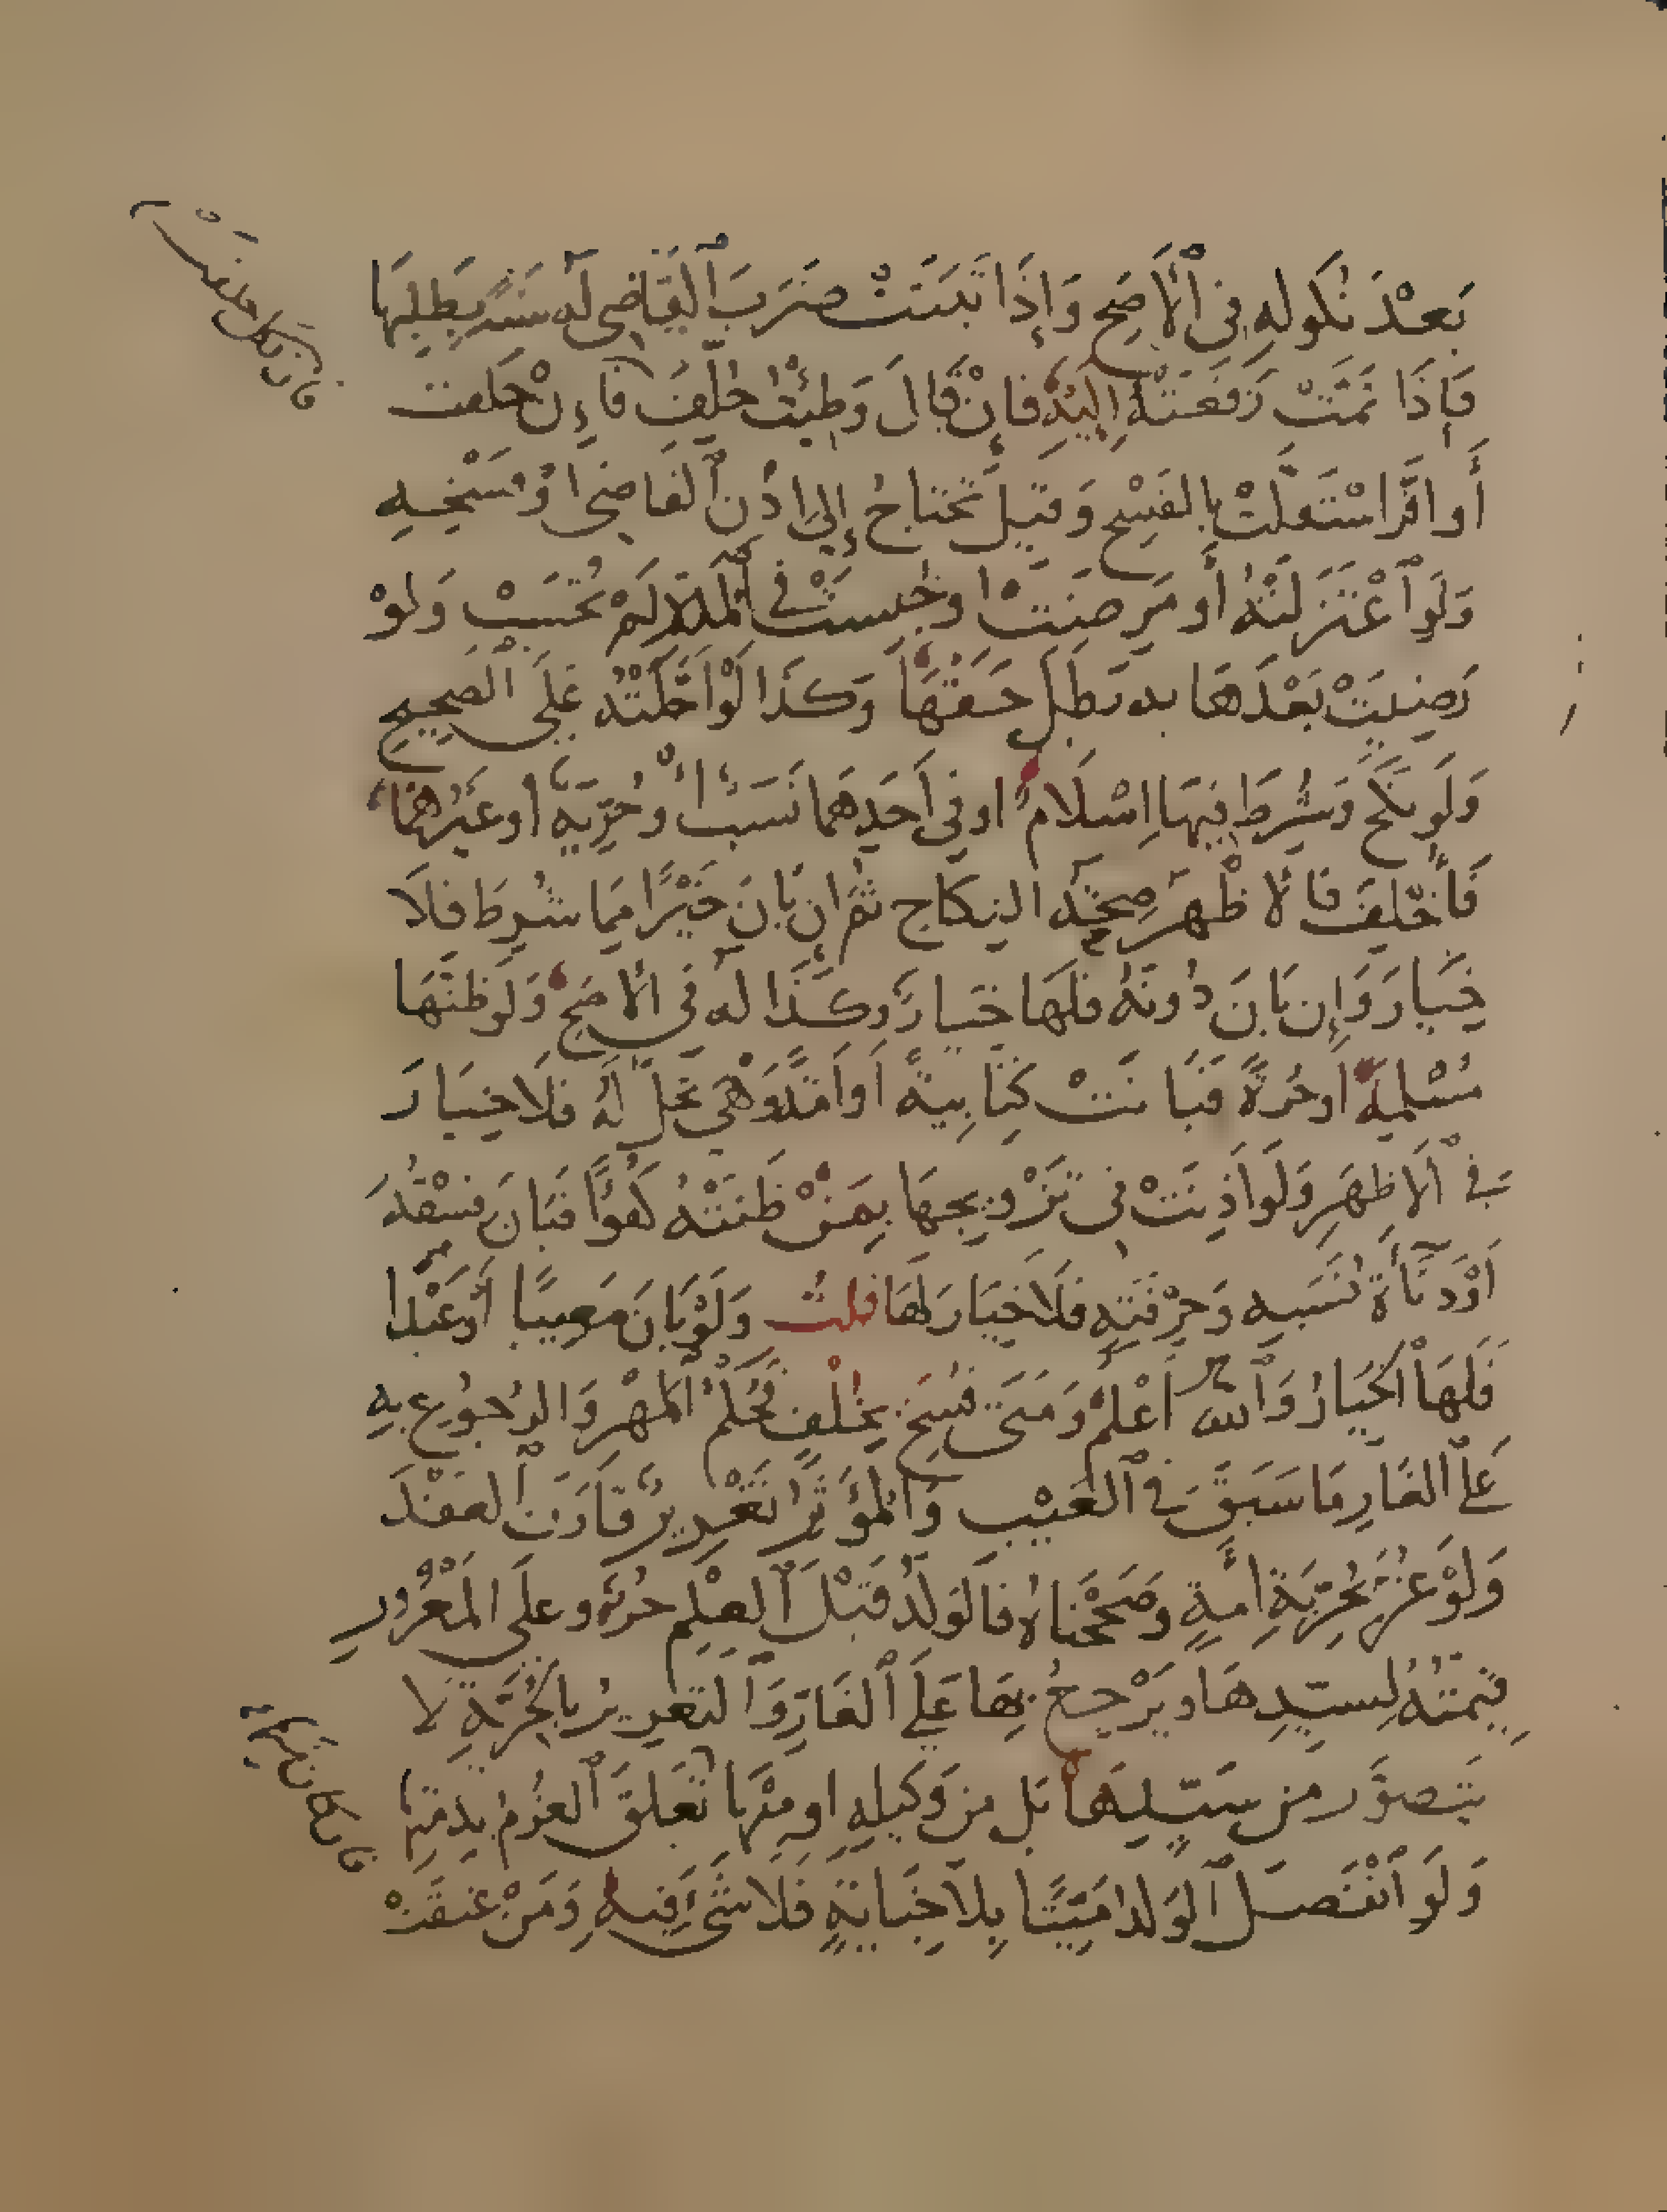 بَعْدَ نُكُولِهِ فِي الْأَصَحِّ وَإِذَا ثَبَتَتْ ضَرَبَ الْقَاضِي لَهُ سَنَةً بِطَلَبِهَا
فَإِذَا تَمَّتْ رَفَعَتْهُ إِلَيْهِ فَإِنْ قَالَ وَطِئْتُ حُلِّفَ فَإِنْ حَلَفَتْ
فإن نكل حلفت
أَوْ أَقَرَّ اسْتَقَلَّتْ بِالْفَسْخِ وَقِيلَ تَحْتَاجُ إِلَى إِذْنِ الْقَاضِي أَوْ فَسْخِهِ
وَلَوِ اعْتَزَلَتْهُ أَوْ مَرِضَتْ أَوْ حُبِسَتْ فِي الْمُدَّةِ لَمْ تُحْسَبْ وَلَوْ
رَضِيَتْ بَعْدَهَا بِهِ بَطَلَ حَقُّهَا وَكَذَا لَوْ أَجَّلَتْهُ عَلَى الصَّحِيحِ
وَلَوْ نَكَحَ وَشُرِطَ فِيهَا إِسْلَامٌ أَوْ فِي أَحَدِهِمَا نَسَبٌ أَوْ حُرِّيَّةٌ أَوْ غَيْرُهُمَا
فَأُخْلِفَ فَالْأَظْهَرُ صِحَّةُ النِّكَاحِ ثُمَّ إِنْ بَانَ خَيْرًا مِمَّا شُرِطَ فَلَا
خِيَارَ وَإِنْ بَانَ دُونَهُ فَلَهَا خِيَارٌ وَكَذَا لَهُ فِي الْأَصَحِّ وَلَوْ ظَنَّهَا
مُسْلِمَةً أَوْ حُرَّةً فَبَانَتْ كِتَابِيَّةً أَوْ أَمَةً وَهِيَ تَحِلُّ لَهُ فَلَا خِيَارَ
فِي الْأَظْهَرِ وَلَوْ أَذِنَتْ فِي تَزْوِيجِهَا بِمَنْ ظَنَّتْهُ كُفُؤًا فَبَانَ فِسْقُهُ
أَوْ دَنَاءَةُ نَسَبِهِ وَحِرْفَتِهِ فَلَا خِيَارَ لَهَا قُلْتُ وَلَوْ بَانَ مَعِيبًا أَوْ عَبْدًا
فَلَهَا الْخِيَارُ وَاللَّهُ أَعْلَمُ وَمَتَى فُسِخَ بِخُلْفٍ فَحُكْمُ الْمَهْرِ وَالرُّجُوعِ بِهِ
عَلَى الْغَارِّ مَا سَبَقَ فِي الْعَيْبِ وَالْمُؤَثِّرُ تَغْرِيرٌ قَارَنَ الْعَقْدَ
وَلَوْ غُرَّ بِحُرِّيَّةِ أَمَةٍ وَصَحَّحْنَاهُ فَالْوَلَدُ قَبْلَ الْعِلْمِ حُرٌّ وَعَلَى الْمَغْرُورِ
قِيمَتُهُ لِسَيِّدِهَا وَيَرْجِعُ بِهَا عَلَى الْغَارِّ وَالتَّغْرِيرُ بِالْحُرِّيَّةِ لَا
يَتَصَوَّرُ مِنْ سَيِّدِهَا بَلْ مِنْ وَكِيلِهِ أَوْ مِنْهَا تَعَلَّقَ الْغُرْمُ بِذِمَّتِهَا
فإن كان منها
وَلَوِ انْفَصَلَ الْوَلَدُ مَيِّتًا بِلَا جِنَايَةٍ فَلَا شَيْءَ فِيهِ وَمَنْ عَتَقَتْ